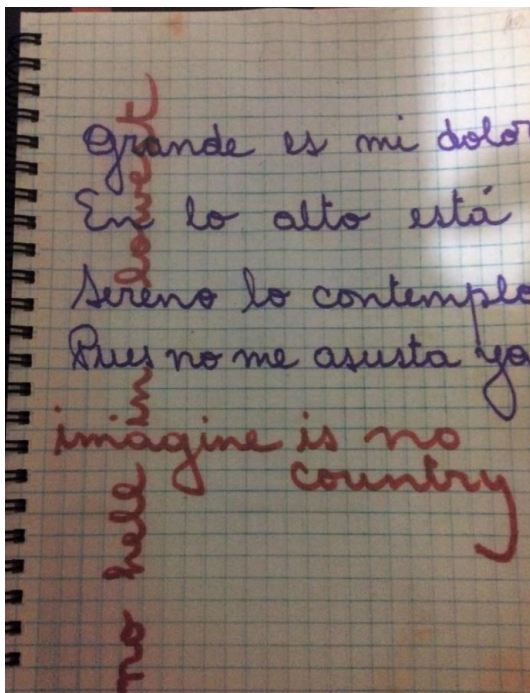 Grande es mi dolor
En lo alto está
Sereno lo contemplo
Pues no me asusta ya
imagine is no
country
no hell in